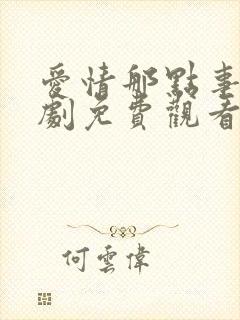 愛情那點事
劇免費觀看
何雲偉